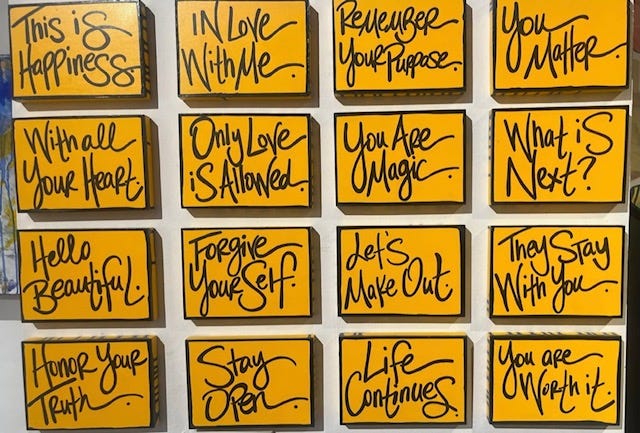 This is
Happiness
IN Love
With Me.
Remember
Your Purpose.
You
Matter.
With all
Your Heart.
Only Love
is Allowed.
You Are
Magic.
What is
Next?
Hello
Beautiful.
Forgive
YourSelf.
Let's
Make Out.
They Stay
With You.
Honor Your
Truth
Stay
Open.
Life
Continues.
You are
Worth it.